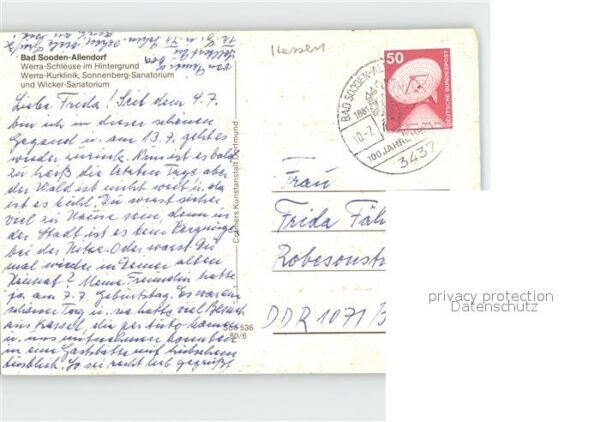 Bad Sooden-Allendorf
Werra-Schleuse im Hintergrund
Werra-Kurklinik, Sonnenberg-Sanatorium
und Wicker-Sanatorium
Liebe Frida! Seit dem 4.7.
bin ich in dieser schönen
Gegend u. am 13.7. geht es
wieder zurück. Nun ist es bald
zu heiß die letzten Tage aber
der Wald ist nicht weit u. da
ist es kühl. Du wirst sicher
viel zu Hause sein, denn in
der Stadt ist es kein Vergnügen
bei der Hitze. Oder warst Du
mal wieder in Deiner alten
Heimat? Meine Freundin hatte
ja am 7.7. Geburtstag. Es war ein
schöner Tag u. sie hatte viel Besuch
aus Kassel, die per Auto kamen
u. uns mitnahmen
in eine Gaststätte mit hübschem
Ausblick. So sei recht lieb gegrüßt
Cramers Kunstanstalt Dortmund
Sss 536
80/6
Hessen
BAD SOODEN-A
1881
10.-7.
100 JAHRE
3437
50
DEUTSCHE BUNDESPOST
Frau
Frida Fäh
Robesonst
DDR 1071 B
privacy protection
Datenschutz